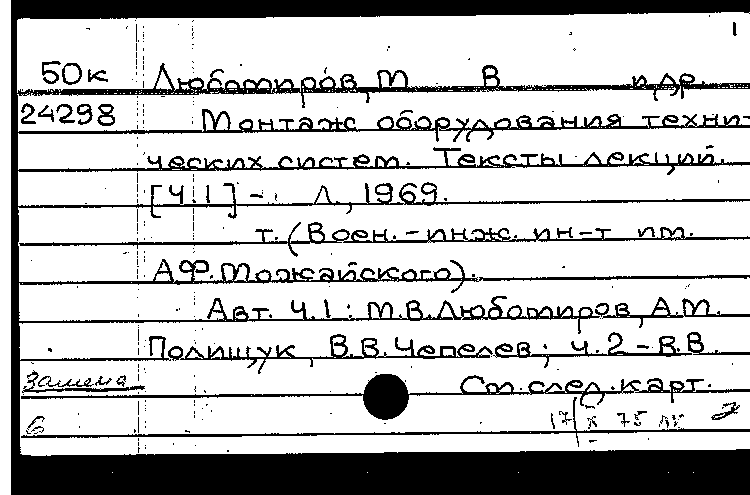 1
50к Любомиров, М В и др.
24298 Монтаж оборудования техни-
ческих систем. Тексты лекций.
[Ч.1] - Л., 1969.
т. (Воен.-инж. ин-т им.
А.Ф.Можайского).
Авт. Ч.1: М.В.Любомиров, А.М.
Полищук, В.В.Чепелев; ч.2 - В.В.
Замена См.след.карт.
6 17/X 75